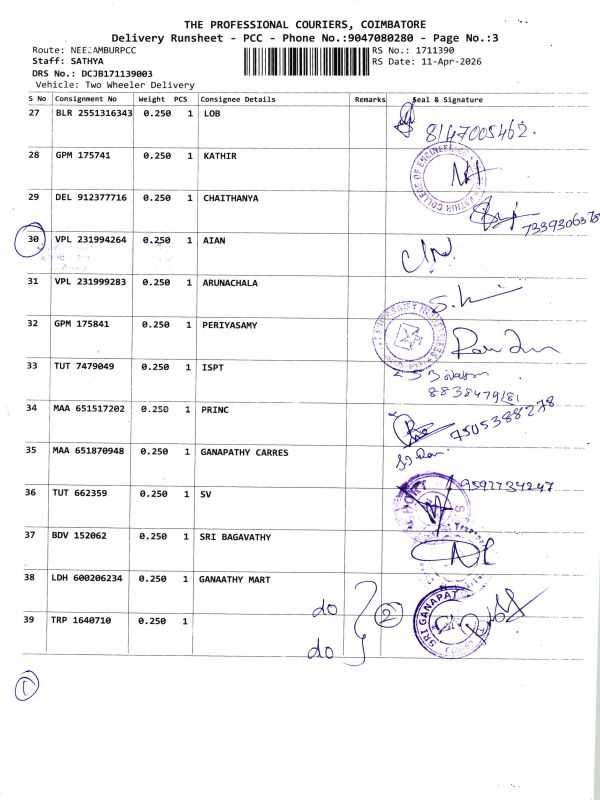 THE PROFESSIONAL COURIERS, COIMBATORE
Delivery Runsheet - PCC - Phone No.:9047080280 - Page No.:3
Route: NEELAMBURPCC
RS No.: 1711390
Staff: SATHYA
RS Date: 11-Apr-2026
DRS No.: DCJB171139003
Vehicle: Two Wheeler Delivery
S No Consignment No Weight PCS Consignee Details Remarks Seal & Signature
27 BLR 2551316343 0.250 1 LOB 8147005462.
28 GPM 175741 0.250 1 KATHIR
29 DEL 912377716 0.250 1 CHAITHANYA
30 VPL 231994264 0.250 1 AIAN
31 VPL 231999283 0.250 1 ARUNACHALA
32 GPM 175841 0.250 1 PERIYASAMY
33 TUT 7479049 0.250 1 ISPT
34 MAA 651517202 0.250 1 PRINC 7505388278
35 MAA 651870948 0.250 1 GANAPATHY CARRES
36 TUT 662359 0.250 1 SV
37 BDV 152062 0.250 1 SRI BAGAVATHY
38 LDH 600206234 0.250 1 GANAATHY MART do
39 TRP 1640710 0.250 1 do
2
SRI GANAPAT
1